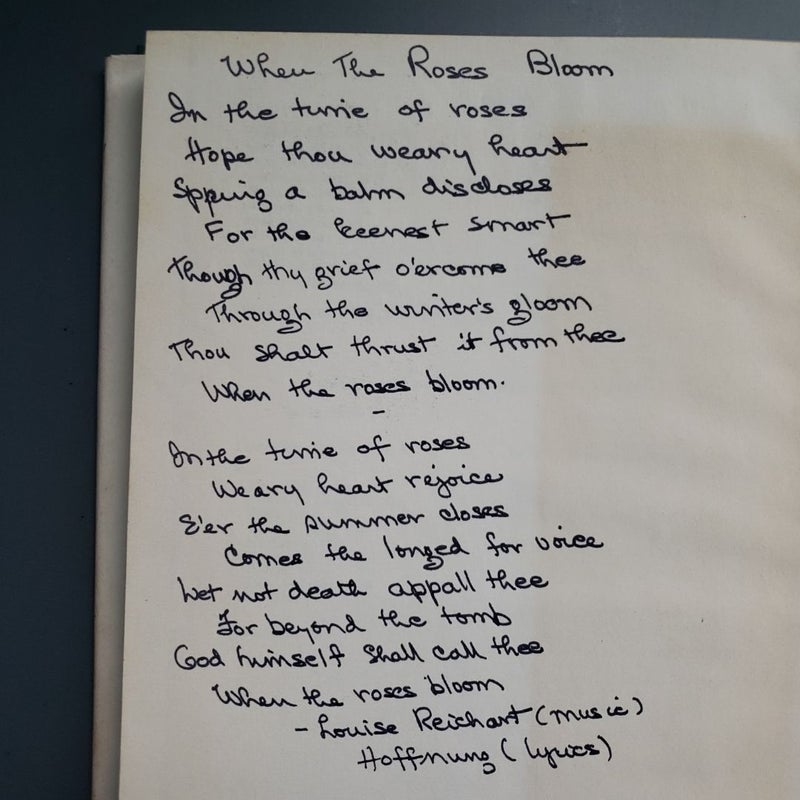 When The Roses Bloom
In the time of roses
Hope thou weary heart
Spping a balm discloses
For the keenest smart
Though thy grief o'ercome thee
Through the winter's gloom
Thou shalt thrust it from thee
When the roses bloom.
-
In the time of roses
Weary heart rejoice
E'er the summer closes
Comes the longed for voice
Let not death appall thee
For beyond the tomb
God himself shall call thee
When the roses bloom
- Louise Reichart (music)
Hoffnung (lyrics)